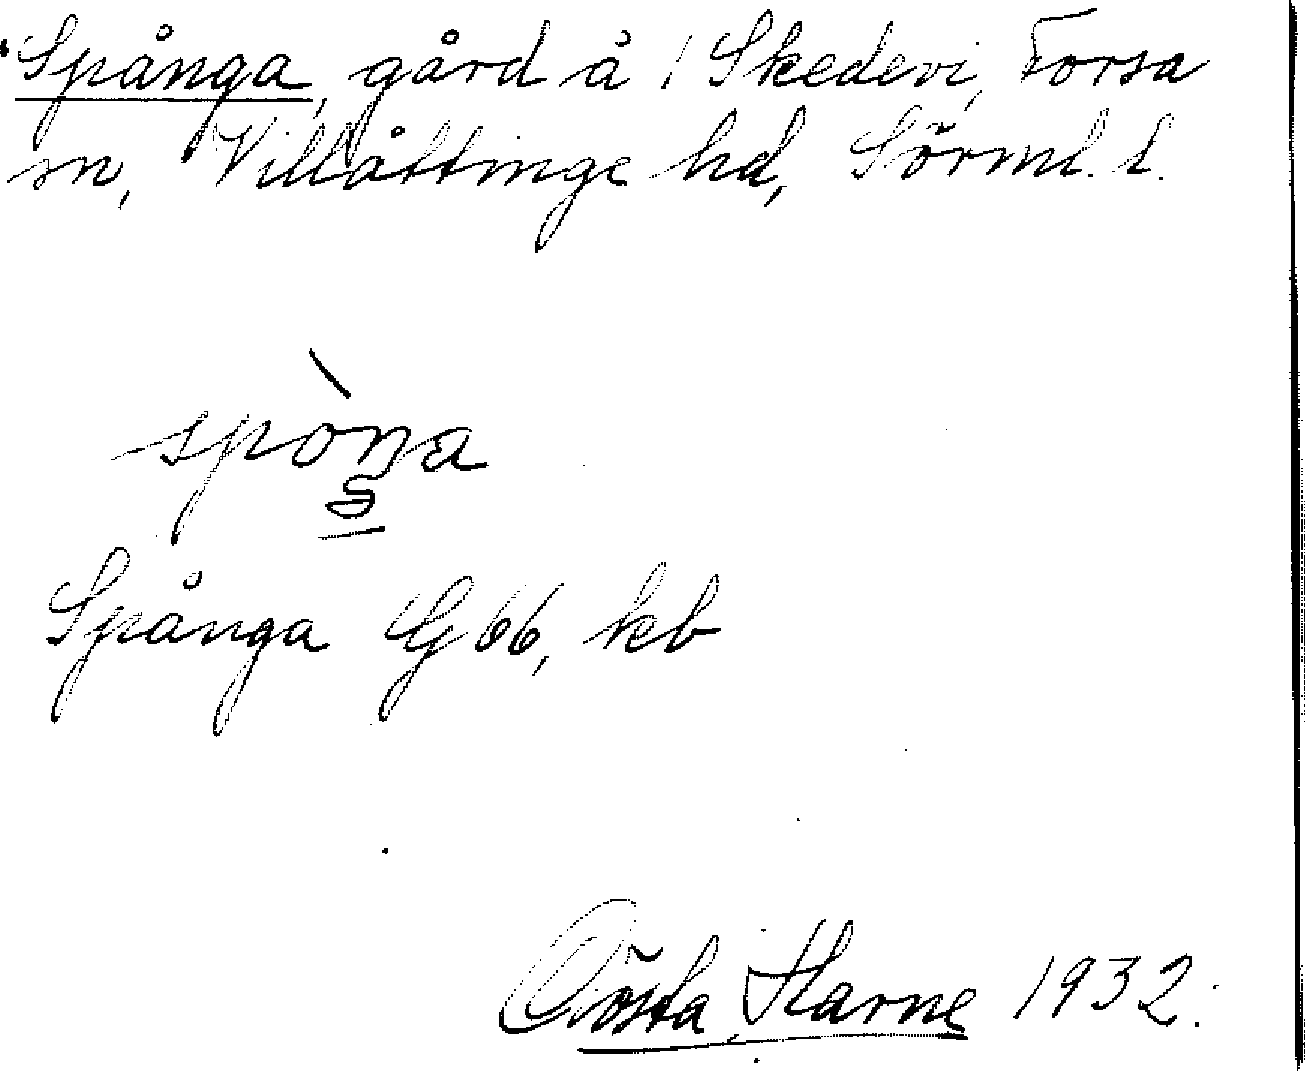 Spånga, gård å 1 Skedevi, Forsa
sn, Villåttinge hd, Sörml. l.
spòŋa
Spånga G 66, kb
Gösta Harne 1932.